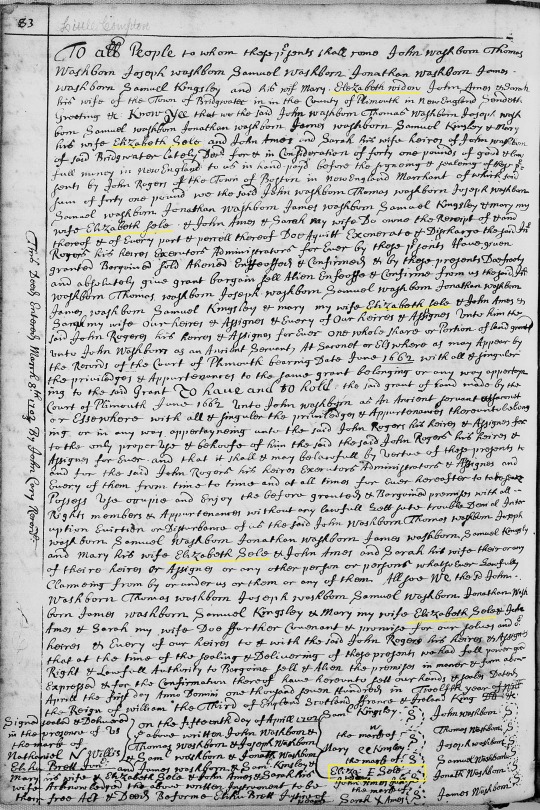 83
Little Compton
To all People to whom these psents shall come John Washborn Thomas
Washborn Joseph washborn Samuel Washborn Jonathan Washborn James
washborn Samuel Kingsley and his wif Mary Elizabeth widow John Ames & Sarah
his wife of the Town of Bridgwater in in the County of Plimouth in New England Sendeth
Greeting & Know Yee that we the said John Washborn Thomas Washborn Joseph wash
born Samuel washborn Jonathan washborn James washborn Samuel Kinsley & Mary
his wife Elizabeth Sole and John Ames and Sarah his wife heires of John washborn
of said Bridgwater lately Desd for & in Consideration of forty one pounds of good & law
full money in New England to us in hand paid before the signeing & sealeing of these p
sents by John Rogers of the Town of Boston in New England Merchant of which said
sum of forty one pound we the said John washborn Thomas washborn Joseph Washborn
Samuel washborn Jonathan Washborn James Washborn Samuel Kingsley & mary my
wife Elizabeth Sole & John Ames & Sarah my wife Do owne the Receipt of & and
thereof & of Every part & percell thereof Doe Aquitt Exonerate & Discharge the said Jn
Rogers his heires Executors Administrators for Ever by these psents Have given
granted Bargained sold Aliened Enfeoffed & Confirmed & by these presents Doe freely
and absolutely give grant bargain sell Alien Enfeoffe & Confirm from us the said Jn
Washborn Thomas washborn Joseph washborn Samuel washborn Jonathan washborn
James washborn Samuel Kingsley & mary my wife Elizabeth Sole & John Ames &
Sarah my wife Our heires & Assignes & Every of Our heires & Assignes Unto him the
said John Rogers his heires & Assignes for Ever one whole share or Portion of land grant
unto John Washborn as an Ancient Servant, At Saconet or Elswhere as may Appear by
the Records of the Court of Plimouth bearing Date June 1662 with all & singuler
the priviledges & Appurtenances to the same grant belonging or any way appertein
ing to the said Grant To have and to hold the said grant of land made by the
Court of Plimouth June 1662 Unto John Washborn as An Ancient servant
or Elsewhere with all & singuler the priviledges & Appurtenances thereunto belong
ing or in any way apportayneing unto the said John Rogers his heires & Assignes for
to the only proper use & behoofe of him the said the said John Rogers his heires &
Assignes for Ever and that it shall & may be lawfull by vertue of these presents to
and for the said John Rogers his heires Executors Administrators & Assignes and
Every of them from time to time and at all times for Ever hereafter to
Possess Use occupie and Enjoy the before granted & Bargained premises with all
Rights members & Appurtenances without any lawfull sute trouble Deniol Inter
uption Eviction or Disturbance of us the said John Washborn Thomas washborn Joseph
washborn Samuel Washborn Jonathan Washborn James washborn, Samuel Kingsly
and Mary his wife Elizabeth Sole & John Ames and Sarah his wife their or any
of theire heires or Assignes or any other person or persons whatsoever lawfully
Clameing from by or under us or them or any of them. Allsoe We the sd John
Washborn Thomas washborn Joseph washborn Samuel Washborn Jonathan Wash
born James washborn Samuel Kingsley & Mary my wife Elizabeth Sole & John
Ames & Sarah my wife Doe further Covenant & promise for our selves and
heires & Every of our heires to & with the said John Rogers his heires & Assignes
that at the time of the sealing & Delivering of these presents we had full power good
Right & Lawfull Authority to Bargaine sell & Alien the premises in maner & form above
Expressed & for the Confirmation thereof have hereunto sett our hands & seales Dated
April the first day Anno Domini one thousand seven hundred in Twelfth year of
the Reign of William the Third of England Scotland ffrance & Ireland King
Signed
sealed & Delivered
in the presence of us
the mark of
Nathaniel N Willis
Elihu Brett
on the fifteenth day of Aprill
above written John Washborn &
Thomas Washborn & Joseph Washborn
& Sam washborn & Jonathan
Washborn & James & Sam Kinsley &
Mary his wife & Elizabeth Sole & John Ames & Sarah his
wife Acknowledged the above written Instrument to be
their free Act & Deed Before me Elihu Brett Justice
Sam Kingsley S
the mark of
Mary Kinsley
the mark of
Eliz E Sole
John Ames
the mark of
Sarah Ames
John Washborn S
Thomas Washborn S
Joseph washborn S
Samuel Washborn S
Jonath Washborn S
James Washborn S
This Deed Entered March 8th 1703 By John Cary Record